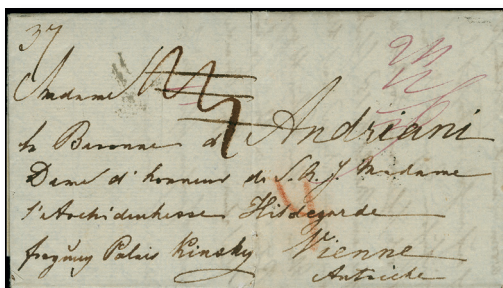 37
Madame
la Baronne d' Andriani
Dame d'honneur de S. A. J. Madame
l'Archiduchesse Hildegarde
Palais Kinsky Vienne
Autriche